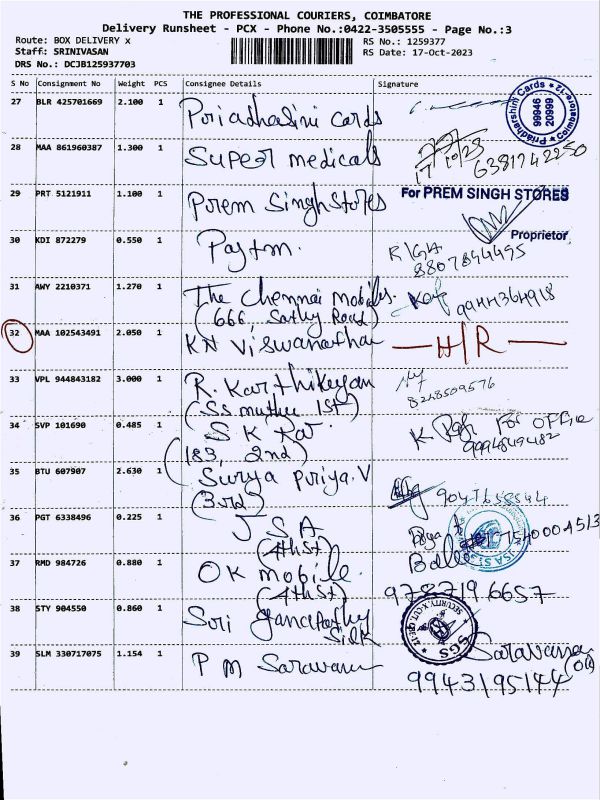 THE PROFESSIONAL COURIERS, COIMBATORE
Delivery Runsheet - PCX - Phone No.:0422-3505555 - Page No.:3
Route: BOX DELIVERY x RS No.: 1259377
Staff: SRINIVASAN RS Date: 17-Oct-2023
DRS No.: DCJB125937703
S No Consignment No Weight PCS Consignee Details Signature
27 BLR 425701669 2.100 1 Priadhasini cards
Priadharshini Cards * Coimbatore-12 * 99946 20999
28 MAA 861960387 1.300 1 Super medicals 17/10/23 6381742250
29 PRT 5121911 1.100 1 Prem Singh Stores For PREM SINGH STORES
Proprietor
30 KDI 872279 0.550 1 Paytm. 8807844495
31 AWY 2210371 1.270 1 The Chennai mobiles. 9944364918
(666, Sathy Road)
32 MAA 102543491 2.050 1 KN Viswanathan H/R
33 VPL 944843182 3.000 1 R. Karthikeyan 8248509576
(SS muthu 1st)
34 SVP 101690 0.485 1 S K Rav K For OFFICE
(183, 2nd) 9994849482
35 BTU 607907 2.630 1 Surya puriya.V
(3rd)
36 PGT 6338496 0.225 1 J S A
(4th St)
37 RMD 984726 0.880 1 OK mobile. 9787196657
(4th St)
38 STY 904550 0.860 1 Sri Ganapathy
Silk
SECURITY SGS
39 SLM 330717075 1.154 1 P M Saravana Saravana
9943195144